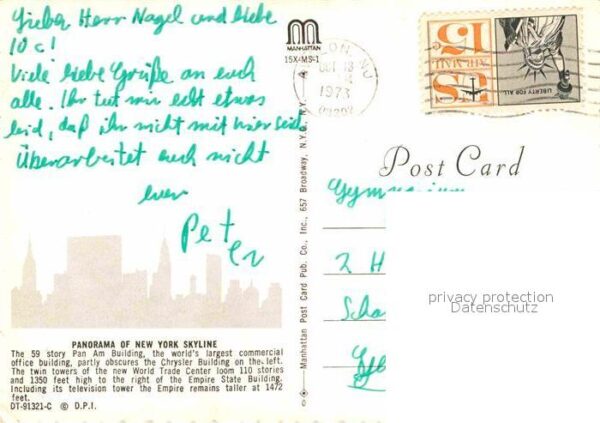 Lieber Herr Nagel und liebe
10c!
Viele liebe Grüße an euch
alle. Ihr tut mir echt etwas
leid, daß ihr nicht mit hier seid
Überarbeitet euch nicht
euer
Peter
MANHATTAN
15X-MS-1
OCT 13
1973
15¢
U.S. AIR MAIL
LIBERTY FOR ALL
Post Card
Gymnasium
2 H
Scha
privacy protection
Datenschutz
Manhattan Post Card Pub. Co., Inc., 657 Broadway, N.Y.C., N.Y.
PANORAMA OF NEW YORK SKYLINE
The 59 story Pan Am Building, the world's largest commercial
office building, partly obscures the Chrysler Building on the left.
The twin towers of the new World Trade Center loom 110 stories
and 1350 feet high to the right of the Empire State Building.
Including its television tower the Empire remains taller at 1472
feet.
DT-91321-C © D.P.I.